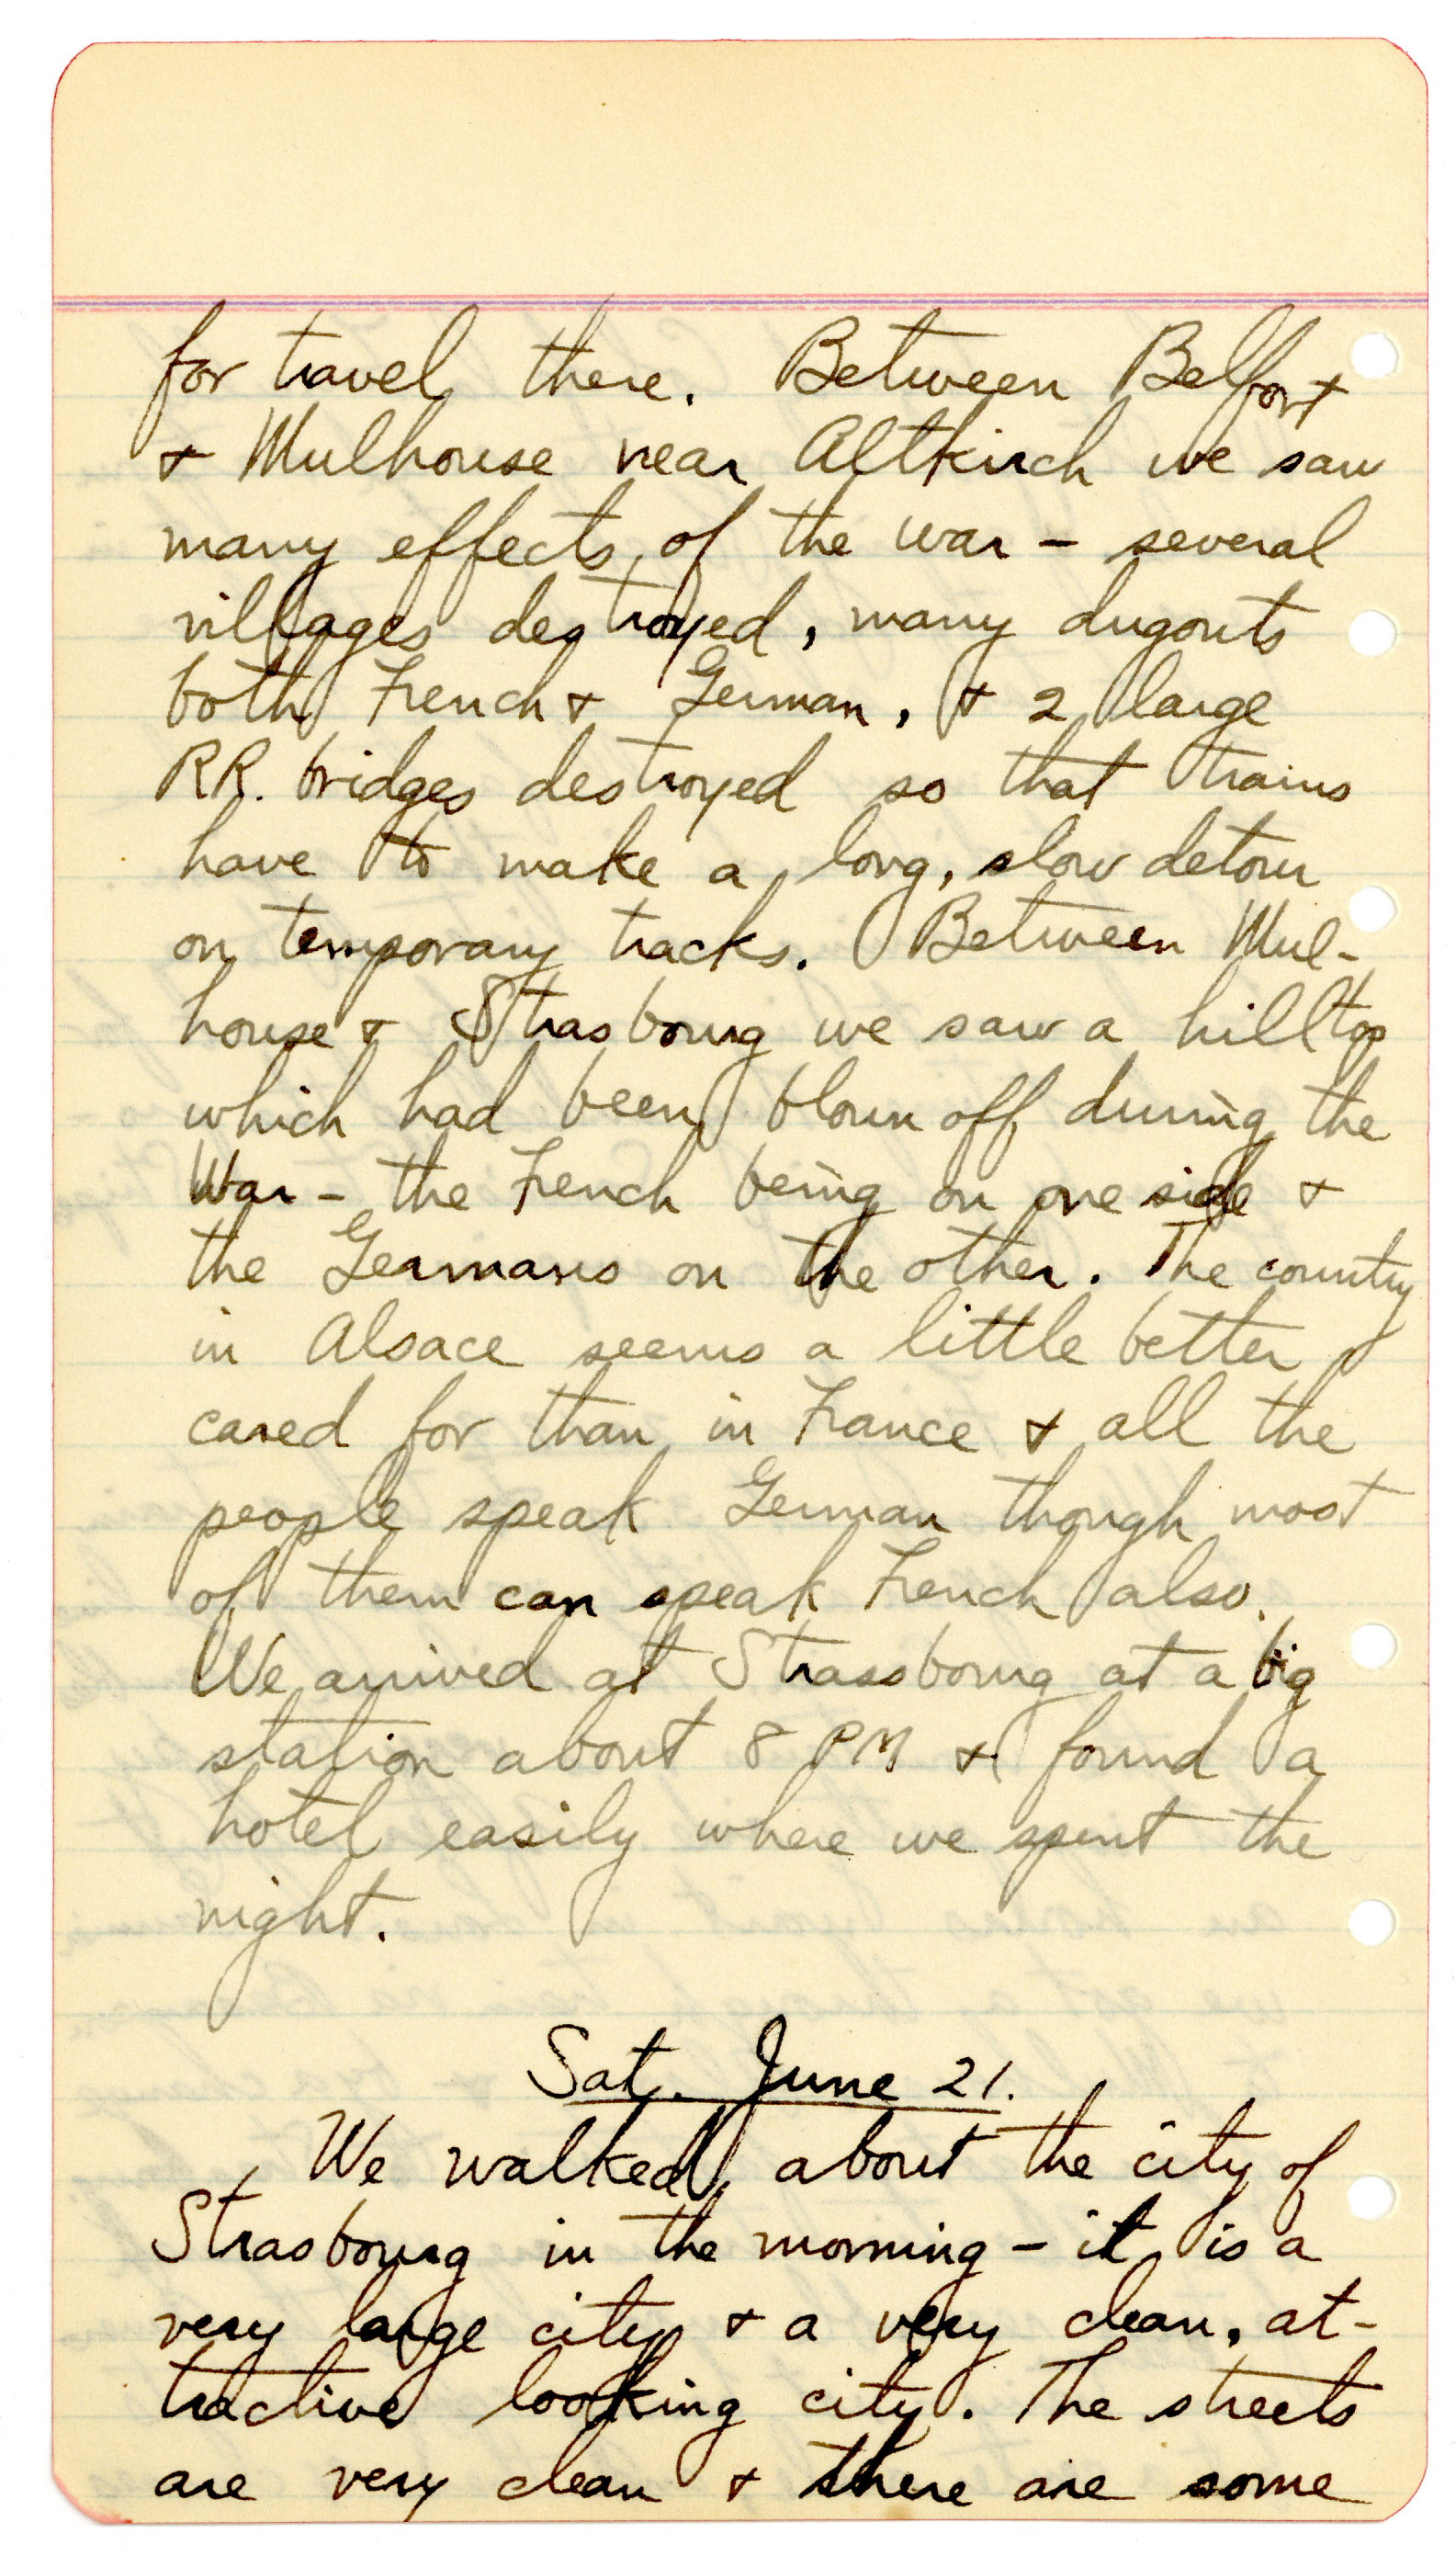 for travel there. Between Belfort
& Mulhouse near Altkirch we saw
many effects of the war - several
villages destroyed, many dugouts
both French & German, & 2 large
RR. bridges destroyed so that trains
have to make a long, slow detour
on temporary tracks. Between Mul-
house & Strasbourg we saw a hilltop
which had been blown off during the
War - the French being on one side &
the Germans on the other. The country
in Alsace seems a little better
cared for than in France & all the
people speak German though most
of them can speak French also.
We arrived at Strassbourg at a big
station about 8 PM & found a
hotel easily where we spent the
night.
Sat. June 21.
We walked about the city of
Strasbourg in the morning - it is a
very large city & a very clean, at-
tractive looking city. The streets
are very clean & there are some